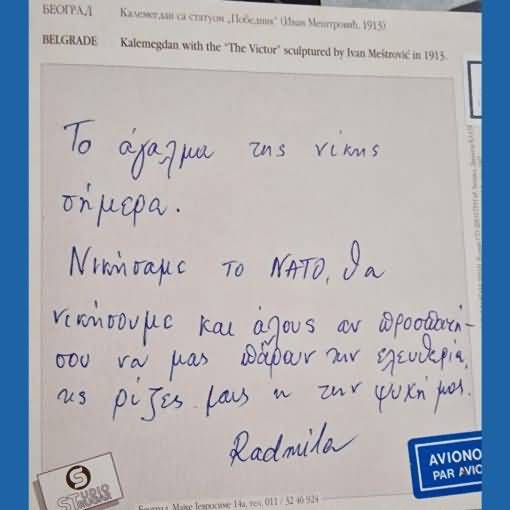 БЕОГРАД Калемегдан са статуом „Победник" (Иван Мештровић, 1913)
BELGRADE Kalemegdan with the "The Victor" sculptured by Ivan Meštrović in 1913.
Το άγαλμα της νίκης
σήμερα.
Νικήσαμε το ΝΑΤΟ, θα
νικήσουμε και άλους αν προσπαθή-
σου να μας πάραν την ελευθερία,
τις ρίζες μας η την ψυχή μας.
Radmila
S
STUDIO
AVIONO
PAR AVIO
Београд, Маке Јевросиме 14а, тел. 011 / 32 46 924